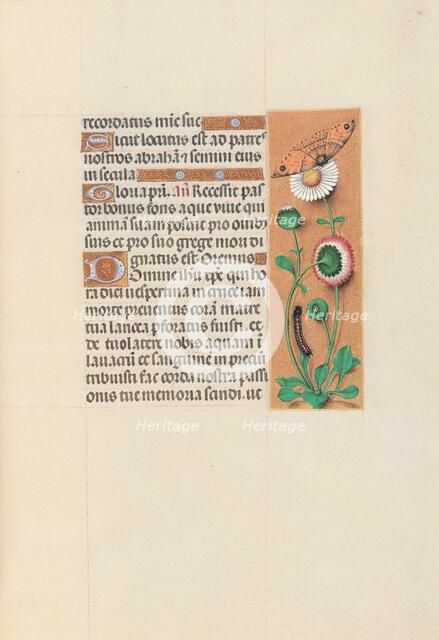 recordatus mie sue
Sicut locutus est ad patres
nostros abraham & semini eius
in secula
Gloria pri. an Recessit pas
tor bonus fons aque vive qui
animam suam posuit pro ovib
suis et pro suo grege mori di
gnatus est Oremus
Domine ihu xpe qui ho
ra diei vespertina in cruce iam
morte perientis coram matre
tua lancea pforatus fuisti et
de tuo latere nobis aquam i
lavacru et sanguine in preciu
tribuisti fac corda nostra passi
onis tue memoria sandi. ut
Heritage
Heritage
Heritage
Heritage
Heritage
Heritage